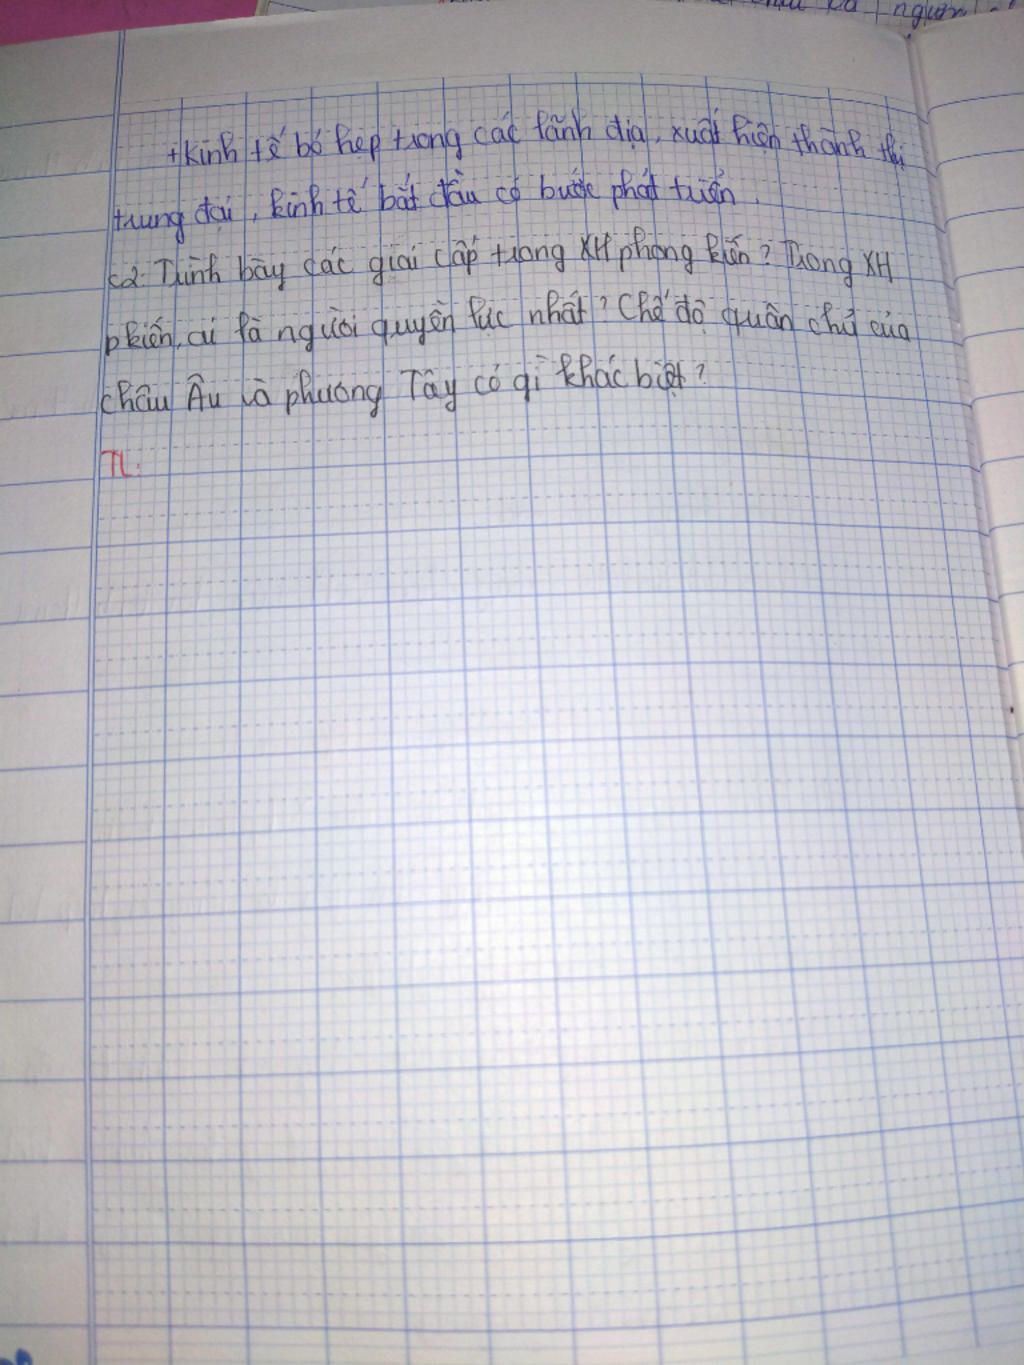 người
+Kinh tế bó hẹp trong các lãnh địa, xuất hiện thành thị
trung đại, kinh tế bắt đầu có bước phát triển.
C2: Trình bày các giai cấp trong XH phong kiến? Trong XH
pkiến, ai là người quyền lực nhất? Chế độ quân chủ của
châu Âu và phương Tây có gì khác biệt?
TL: